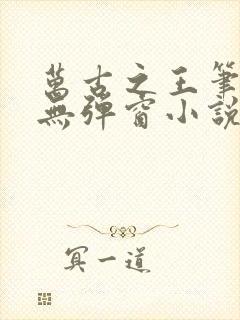 萬古之王筆
無彈窗小說
冥一道